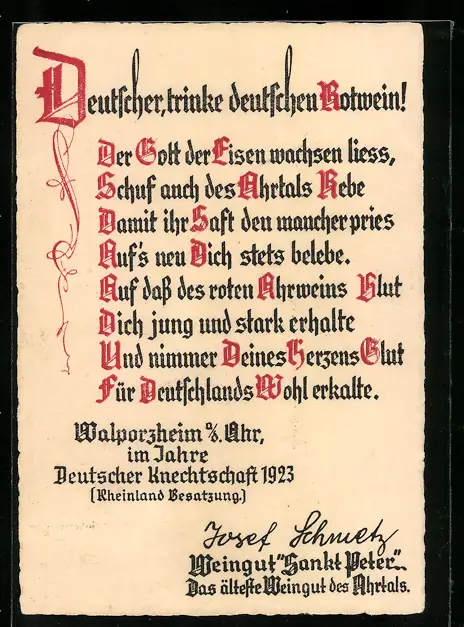 Deutscher, trinke deutschen Rotwein!
Der Gott der Eisen wachsen liess,
Schuf auch des Ahrtals Rebe
Damit ihr Saft den mancher pries
Auf's neu Dich stets belebe.
Auf daß des roten Ahrweins Blut
Dich jung und stark erhalte
Und nimmer Deines Herzens Glut
Für Deutschlands Wohl erkalte.
Walporzheim a/d. Ahr,
im Jahre
Deutscher Knechtschaft 1923
(Rheinland Besatzung.)
Josef Schmetz
Weingut "Sankt Peter"
Das älteste Weingut des Ahrtals.